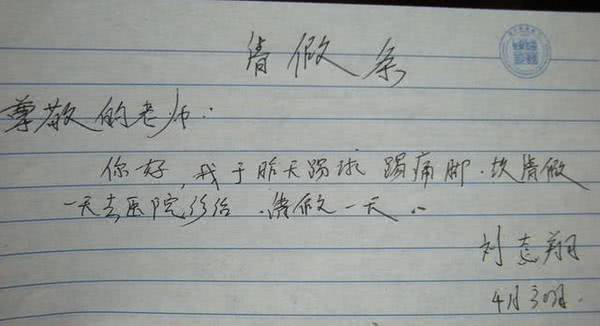 请假条
尊敬的老师:
你好,我于昨天踢球 踢痛脚.故请假
一天去医院诊治.请假一天..
刘志翔
4月30日.